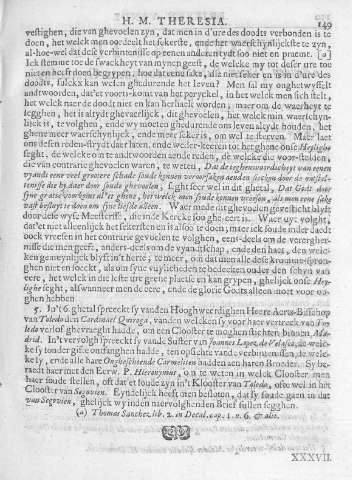 H. M. THERESIA. 149
vestighen, die van ghevoelen zyn, dat men in d'ure des doodts verbonden is te
doen, het welck men oordeelt het sekerste, ende het waerschynlijckste te zyn,
al-hoe-wel dat dese verbintenisse op eenen anderen tydt soo niet en praemt. [a]
Ick stemme toe de swackheyt van mynen geest, de welcke my tot deser ure toe
niet en heeft doen begrypen, hoe dat eene saks, die niet seker en is in d'ures des
doodts, sulckx kan wesen ghedurende het leven? Men sal my oughetwyffelt
andtwoorden, dat et voorts-komt van het peryckel, in het welck men sich stelt,
het welck naer de doodt niet en kan herhaelt worden; maer om de waerheyt te
segghen, het is altydt ghevaerelijck, dit ghevoelen, het welck min waerschyn-
lijck is, te volghen, ende wy moeten ghedurende ons leven altydt houden, het
ghene meer waerschynlijck, ende meer seker is, om wel te sterven. Maer laet
ons desen reden-strydt daer laten, ende weder-keeren tot het ghene onse Heylighe
seght, de welcke om te andtwoorden aende reden, de welcke die voor-stelden,
die van contrarie ghevoelen waren, te weten, Dat de teghenwoordicheyt van eenen
vyandt eene veel grootere schade soude konnen veroorsaken aenden siecken door de
door hy daer door soude ghevoelen; seght seer wel in dit ghetal, Dat Godt door
syne gratie voorkomt al't ghene, het welck men soude konnen vreesen, als men eene sake
vast besluyt te doen om syne liefde alleen. Waer mede dit ghevoelen gevesticht blyft
door dese wyse Meestersse, die in de Kercke soo ghe-eert is. Waer uyt volght,
dat'et niet alleenlijck het sekersten is also te doen, maer ick soude inder daedt
oock vreesen in het contrarie gevoelen te volgen, eens-deels om de vererghe-
nisse die men geeft, ander-deels om de vyandtschap, ende den haet, den welc-
ken gemeynelijck blyft in't herte; te meer, om dat men alle dese kromme-spron-
ghen niet en soeckt, als om syne vuylicheden te bedecken onder den schyn van
eere, het welck in die leste ure geene plaetse en kan grypen, ghelijck onse Hey-
lighe seght, alswanneer men de eere, ende de glorie Godts alleen moet voor oo-
ghen hebben
5. In't 6. ghetal spreeckt sy vanden Hooghweerdighen Heere Aerts-Bisschop
van Toledo den Cardinael Quiroga, van den welcken sy voor haer vertreck van To-
ledo verlof ghevraeght hadde, om een Clooster te moghen stichten binnen Ma-
drid. In't vervolgh spreeckt sy vande Suster van Joannes Lopez, de Velasco, de welc-
ke sy tonder gift ontfanghen hadde, ten opsichte vande verdiensten, de welc-
ke sy, ende alle hare Ongheschoende Carmeliten hadden aen haren Broeder. Sy be-
raedt haer met den Eerw. P. Hieronymus, om te weten in welck Clooster men
haer soude stellen, oft dat et soude zyn in't Klooster van Toledo, ofte wel in het
Clooster van Segovien. Eyndelijck heeft men besloten, dat sy soude gaen in dat
van Segovien, ghelijck wy in den naervolghenden Brief sullen segghen.
(a) Thomas Sanchez, lib. 2. in Decal. cap. 1. n. 6. & alii.
XXXVII.